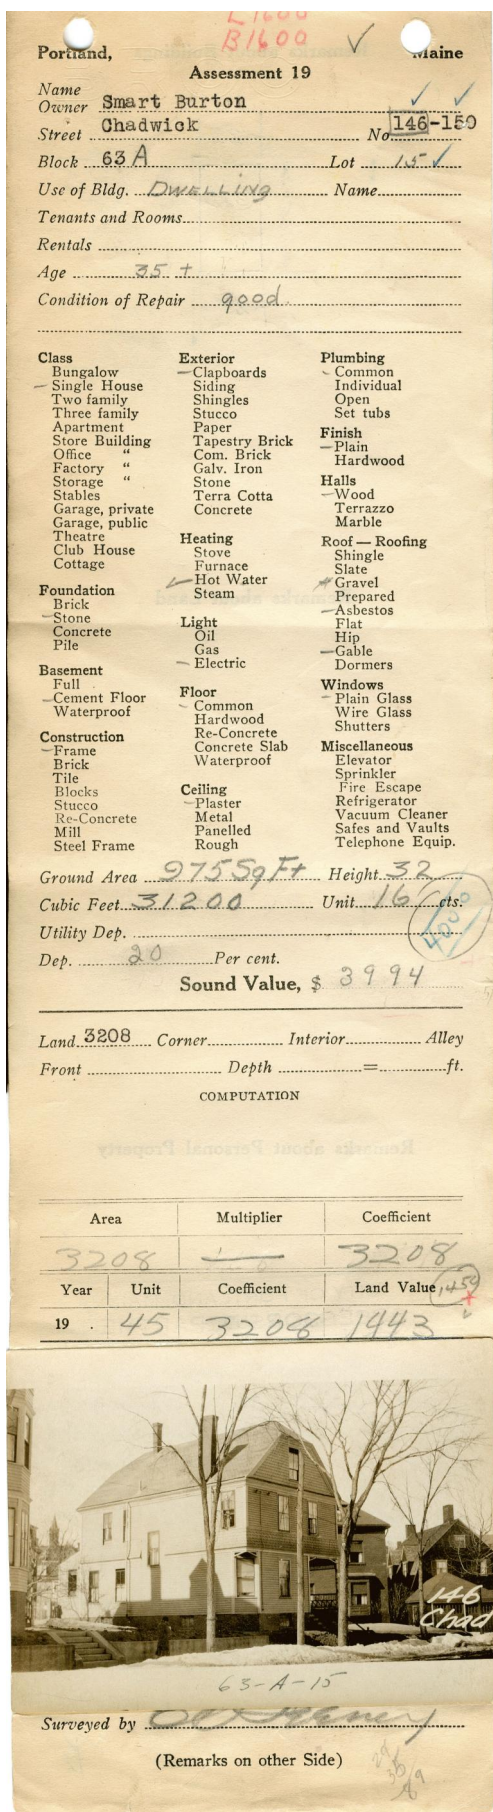 L1600
B1600 ✓
Portland, Maine
Assessment 19
Name
Owner Smart Burton
Street Chadwick No 146-150
Block 63 A Lot 15 ✓
Use of Bldg. DWELLING Name
Tenants and Rooms
Rentals
Age 35 +
Condition of Repair good
Class
Bungalow
Single House
Two family
Three family
Apartment
Store Building
Office "
Factory "
Storage "
Stables
Garage, private
Garage, public
Theatre
Club House
Cottage
Foundation
Brick
Stone
Concrete
Pile
Basement
Full
Cement Floor
Waterproof
Construction
Frame
Brick
Tile
Blocks
Stucco
Re-Concrete
Mill
Steel Frame
Exterior
Clapboards
Siding
Shingles
Stucco
Paper
Tapestry Brick
Com. Brick
Galv. Iron
Stone
Terra Cotta
Concrete
Heating
Stove
Furnace
Hot Water
Steam
Light
Oil
Gas
Electric
Floor
Common
Hardwood
Re-Concrete
Concrete Slab
Waterproof
Ceiling
Plaster
Metal
Panelled
Rough
Plumbing
Common
Individual
Open
Set tubs
Finish
Plain
Hardwood
Halls
Wood
Terrazzo
Marble
Roof — Roofing
Shingle
Slate
Gravel
Prepared
Asbestos
Flat
Hip
Gable
Dormers
Windows
Plain Glass
Wire Glass
Shutters
Miscellaneous
Elevator
Sprinkler
Fire Escape
Refrigerator
Vacuum Cleaner
Safes and Vaults
Telephone Equip.
Ground Area 975 Sq Ft Height 32
Cubic Feet 31200 Unit 16 cts.
4000
Utility Dep.
Dep. 20 Per cent.
Sound Value, $ 3994
Land 3208 Corner Interior Alley
Front Depth = ft.
COMPUTATION
Area Multiplier Coefficient
3208 — 3208
Year Unit Coefficient Land Value 1450
19 . 45 3208 1443
146
Chad
63-A-15
Surveyed by
(Remarks on other Side)